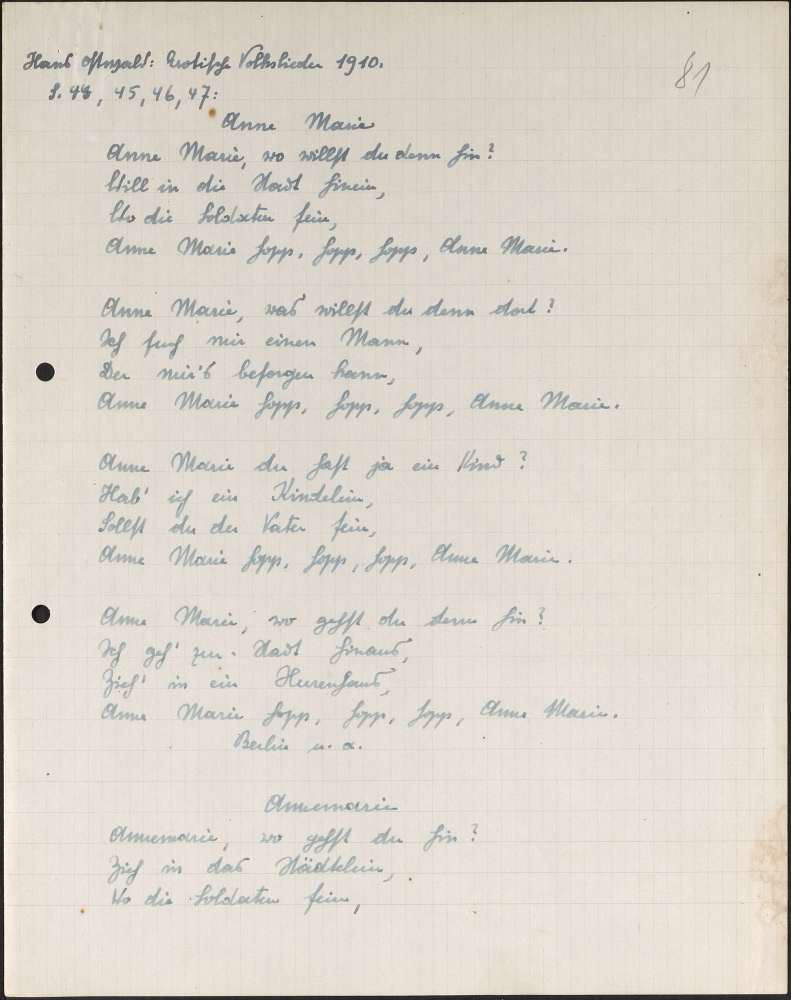 Hans Ostwald: Erotische Volkslieder 1910.
81
S. 44, 45, 46, 47:
Anne Marie
Anne Marie, wo willst du denn hin?
Will in die Stadt hinein,
Wo die Soldaten sein,
Anne Marie hopp, hopp, hopp, Anne Marie.
Anne Marie, was willst du denn dort?
Ich such mir einen Mann,
Der mir's besorgen kann,
Anne Marie hopp, hopp, hopp, Anne Marie.
Anne Marie du hast ja ein Kind?
Hab' ich ein Kindelein,
Sollst du der Vater sein,
Anne Marie hopp, hopp, hopp, Anne Marie.
Anne Marie, wo gehst du denn hin?
Ich geh' zur Stadt hinaus,
Zieh' in ein Hurenhaus,
Anne Marie hopp, hopp, hopp, Anne Marie.
Berlin u. a.
Annemarie
Annemarie, wo gehst du hin?
Zieh in das Städtelein,
Wo die Soldaten sein,